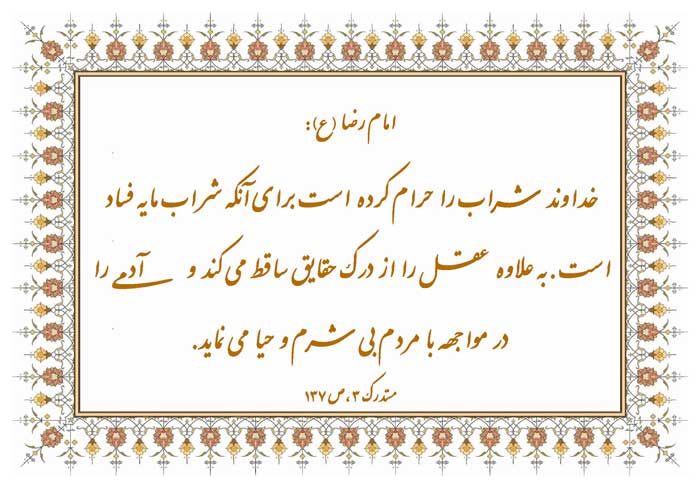 امام رضا (ع):
خداوند شراب را حرام کرده است برای آنکه شراب مایه فساد
است. به علاوه عقل را از درک حقایق ساقط می کند و آدمی را
در مواجهه با مردم بی شرم و حیا می نماید.
مستدرک ۳، ص ۱۳۷